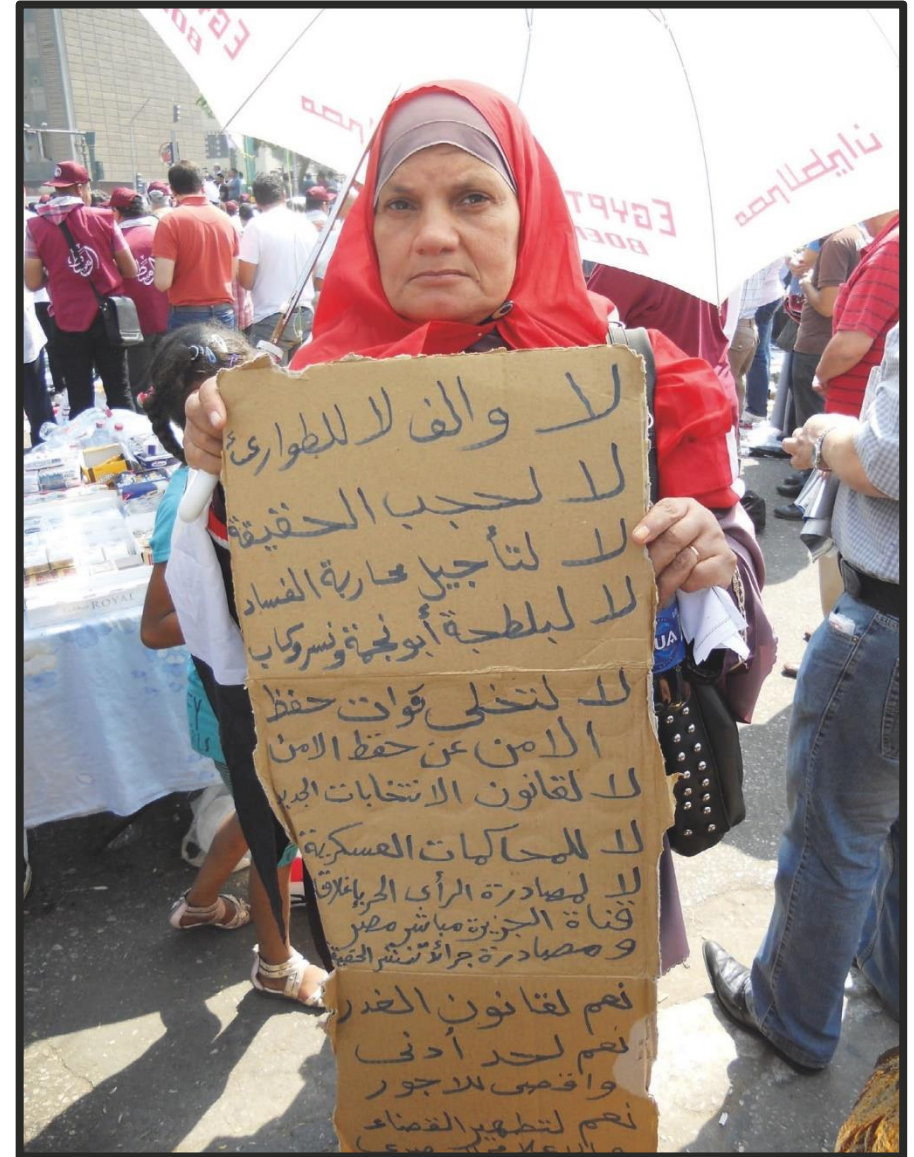 EGYPT
مصر للطيران
مصر للطيران
EGYPT
لا والف لا للطوارئ
لا لحجب الحقيقة
لا لتأجيل محاربة الفساد
لا لبلطجة أبو نجمة ونسر وكاب
لا لتخلى قوات حفظ
الامن عن حفظ الامن
لا لقانون الانتخابات الجديد
لا للمحاكمات العسكرية
لا لمصادرة الرأى الحر بإغلاق
قناة الجزيرة مباشر مصر
ومصادرة جرائد تنشر الحقيقة
نعم لقانون الغدر
نعم لحد أدنى
واقصى للاجور
نعم لتطهير القضاء
ROYAL